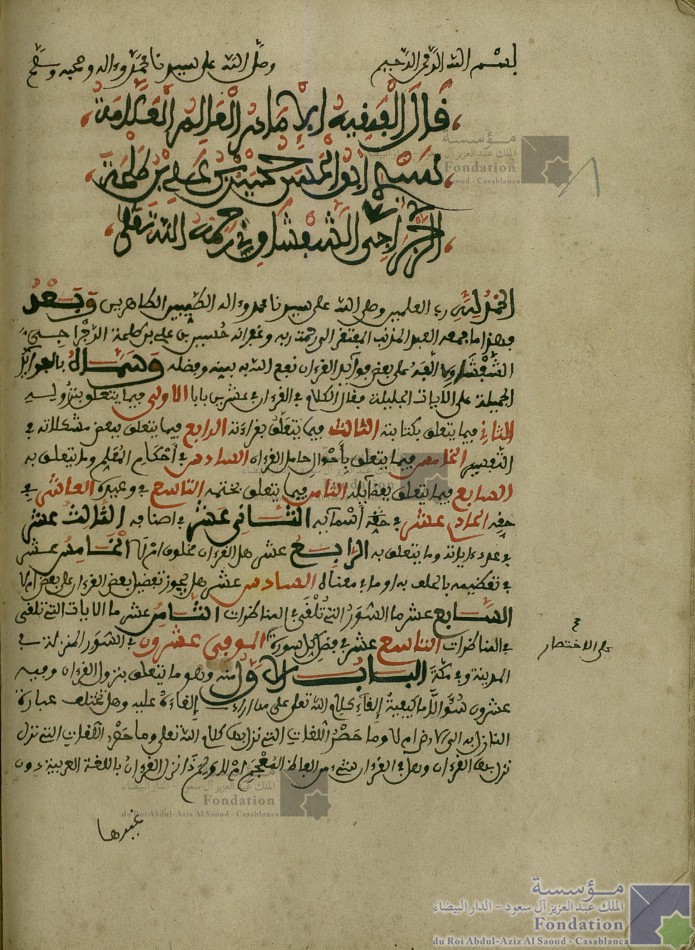 بسم الله الرحمن الرحيم وصلى الله على سيدنا محمد وءاله وصحبه وسلم
قال الفقيه الإمام العالم العلامة
أبو حسين بن علي بن طلحة
الرجراجي الشوشاوي رحمه الله تعلى
الحمد لله رب العلمين وصلى الله على سيدنا محمد وءاله الطيبين الطاهرين وبعد
فهذا ما جمعه العبد المذنب المفتقر الى رحمة ربه وغفرانه حسين بن علي بن طلحة الرجراجي
الشوشاوي على بعض فوائد القرءان نفع الله به بمنه وفضله وسماه بالفوائد
الجميلة على الآيات الجليلة فقال الكلام في القرءان في عشرين بابا الأولى فيما يتعلق بنزوله
الثاني فيما يتعلق بكتابته الثالث فيما يتعلق بقراءته الرابع فيما يتعلق ببعض مشكلاته في
التفسير الخامس فيما يتعلق بأحوال حامل القرءان السادس في أحكام المعلم وما يتعلق به
السابع فيما يتعلق بفضائله الثامن فيما يتعلق بختمه التاسع في وعيده العاشر في
حزبه الحادي عشر في أسمائه الثاني عشر في أصنافه الثالث عشر
في عدد ءاياته وما يتعلق به الرابع عشر هل القرءان مخلوق ام لا الخامس عشر
في تعظيمه بالحلف به او ما في معناه السادس عشر هل يجوز تفضيل بعض القرءان على بعض ام لا
السابع عشر ما السور التي تلغى في المناظرات الثامن عشر ما الآيات التي تلغى
في المناظرات التاسع عشر في فضل كل سورة الموفي عشرون في السور المنزلة في
المدينة وفي مكة الباب الأول منه وهو ما يتعلق بنزول القرءان وفيه
عشرون سؤالا ما كيفية إلقاء كلام الله تعلى على من أراد إلقاءه عليه وهل تختلف عبارة
النازل به الى ام لا وما حصر اللغات التي نزل بها كلام الله تعلى وما حصر اللغات التي نزل
نزل بها القرءان وهل في القرءان شيء من العجم ام لا ولم نزل القرءان باللغة العربية دون
غيرها
على الاختصار
مؤسسة
الملك عبد العزيز آل سعود - الدار البيضاء
Fondation
du Roi Abdul-Aziz Al Saoud - Casablanca